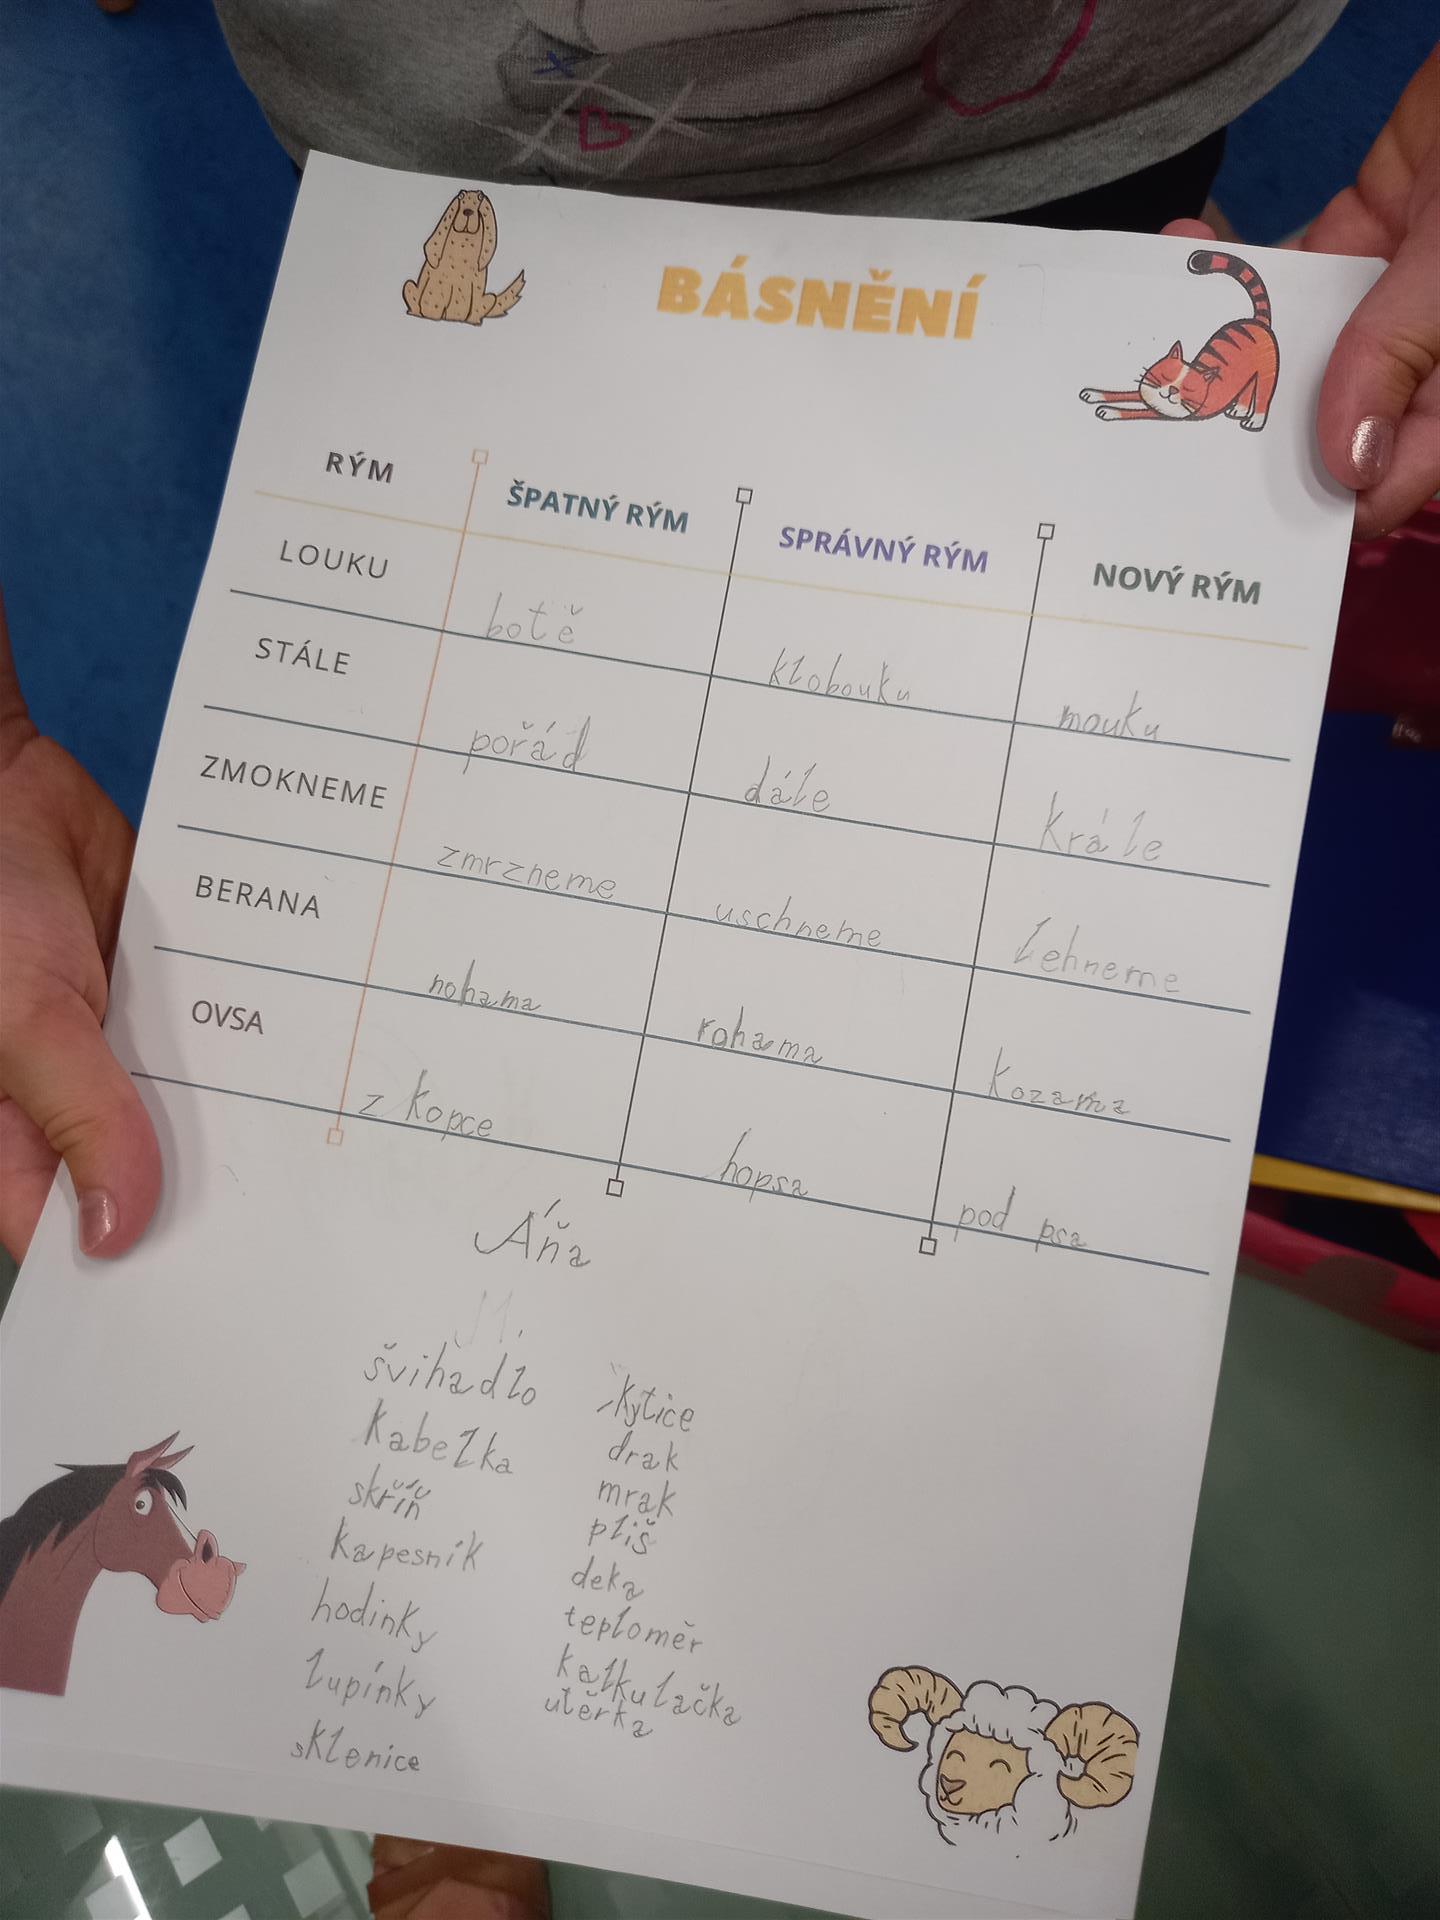 BÁSNĚNÍ
RÝM ŠPATNÝ RÝM SPRÁVNÝ RÝM NOVÝ RÝM
LOUKU botě klobouku mouku
STÁLE pořád dále krále
ZMOKNEME zmrzneme uschneme lehneme
BERANA nohama rohama kozama
OVSA z kopce hopsa pod psa
Áňa
M.
švihadlo kytice
kabelka drak
skříň mrak
kapesník pliš
hodinky deka
lupínky teploměr
sklenice kalkulačka
utěrka